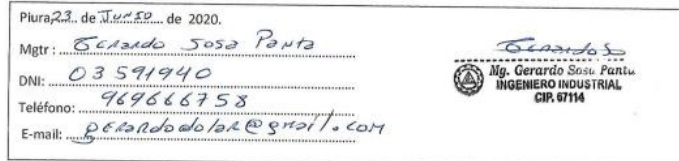 Piura, 23 de Junio de 2020.
Mgtr : Gerardo Sosa Panta
DNI: 03591940
Teléfono: 969666758
E-mail: gerardodolar@gmail.com
Gerardo S
Mg. Gerardo Sosa Panta
INGENIERO INDUSTRIAL
CIP. 67114